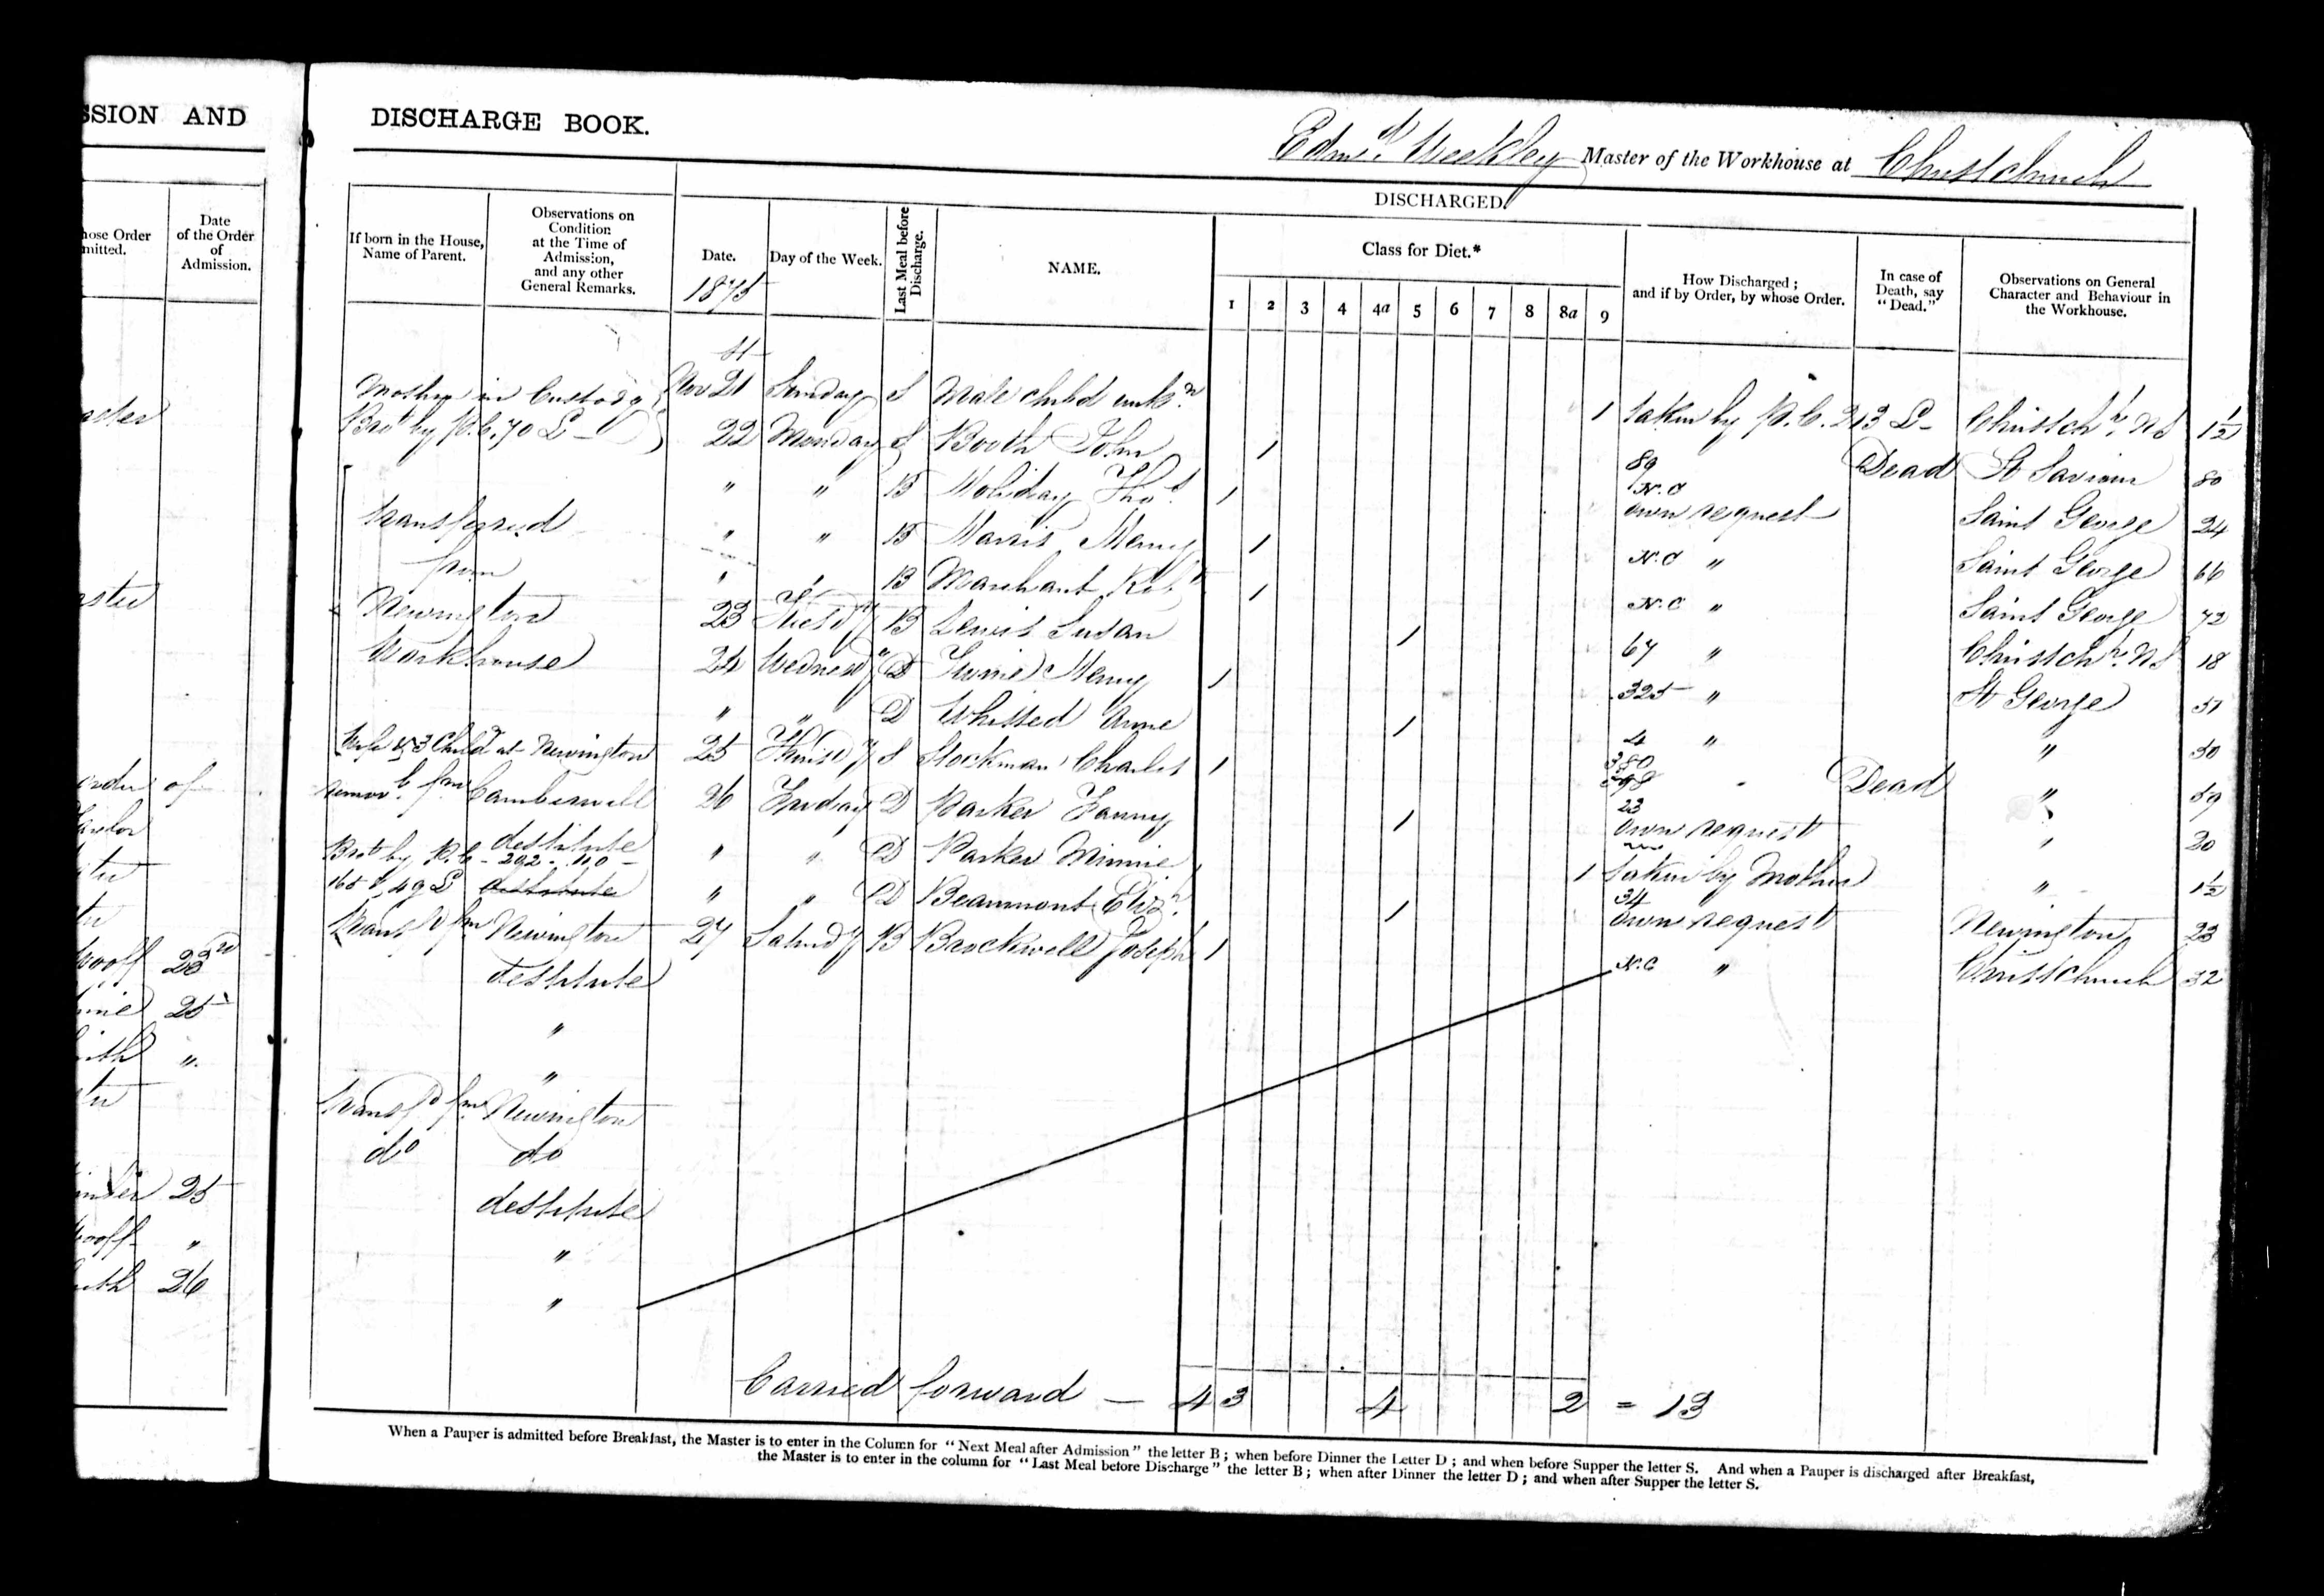 SSION AND
DISCHARGE BOOK.
Edmd. Weekley Master of the Workhouse at Christchurch
hose Order
mitted.
Date
of the Order
of
Admission.
If born in the House,
Name of Parent.
Observations on
Condition
at the Time of
Admission,
and any other
General Remarks.
DISCHARGED.
Date.
1875
Day of the Week.
Last Meal before
Discharge.
NAME.
Class for Diet.*
1 2 3 4 4a 5 6 7 8 8a 9
How Discharged ;
and if by Order, by whose Order.
In case of
Death, say
"Dead."
Observations on General
Character and Behaviour in
the Workhouse.
Mother in Custody
Brot by P.C. 70 L
Nov 21 Sunday S Male child unkn. 1 taken by P.C. 213 L Christchh. NS 1½
22 Monday S Booth John 1 89 Dead St Saviour 80
" " B Holiday Thos. 1 N.C own request Saint George 24
" " B Harris Henry 1 N.C " Saint George 66
" " B Marchant Robt 1 N.C " Saint George 72
23 Tuesdy B Lewis Susan 1 67 " Christchh. NS 18
24 Wednesdy D Henry 1 325 " St George 51
" " D Whissed Anne 1 4 " " 50
25 Thursdy S Stockman Charles 1 380 Dead " 59
26 Friday D Parker Fanny 1 23 own request " 20
" " D Parker Minnie 1 taken by Mother " 1½
" " D Beaumont Elizh. 1 34 own request Newington 23
27 Saturdy B Brockwell Joseph 1 N.C " Christchurch 32
transferred
from
Newington
Workhouse
Wife & 3 Childn at Newington
remov. fm Camberwell
destitute
Brot by P.C. 292. 110
165 & 49 L destitute
Transfd fm Newington
destitute
"
"
transfd fm Newington
do do
destitute
"
"
order of
23rd
25
"
25
"
26
Carried forward — 4 3 4 2 = 13
When a Pauper is admitted before Breakfast, the Master is to enter in the Column for "Next Meal after Admission" the letter B ; when before Dinner the Letter D ; and when before Supper the letter S. And when a Pauper is discharged after Breakfast,
the Master is to enter in the column for "Last Meal before Discharge" the letter B ; when after Dinner the letter D ; and when after Supper the letter S.